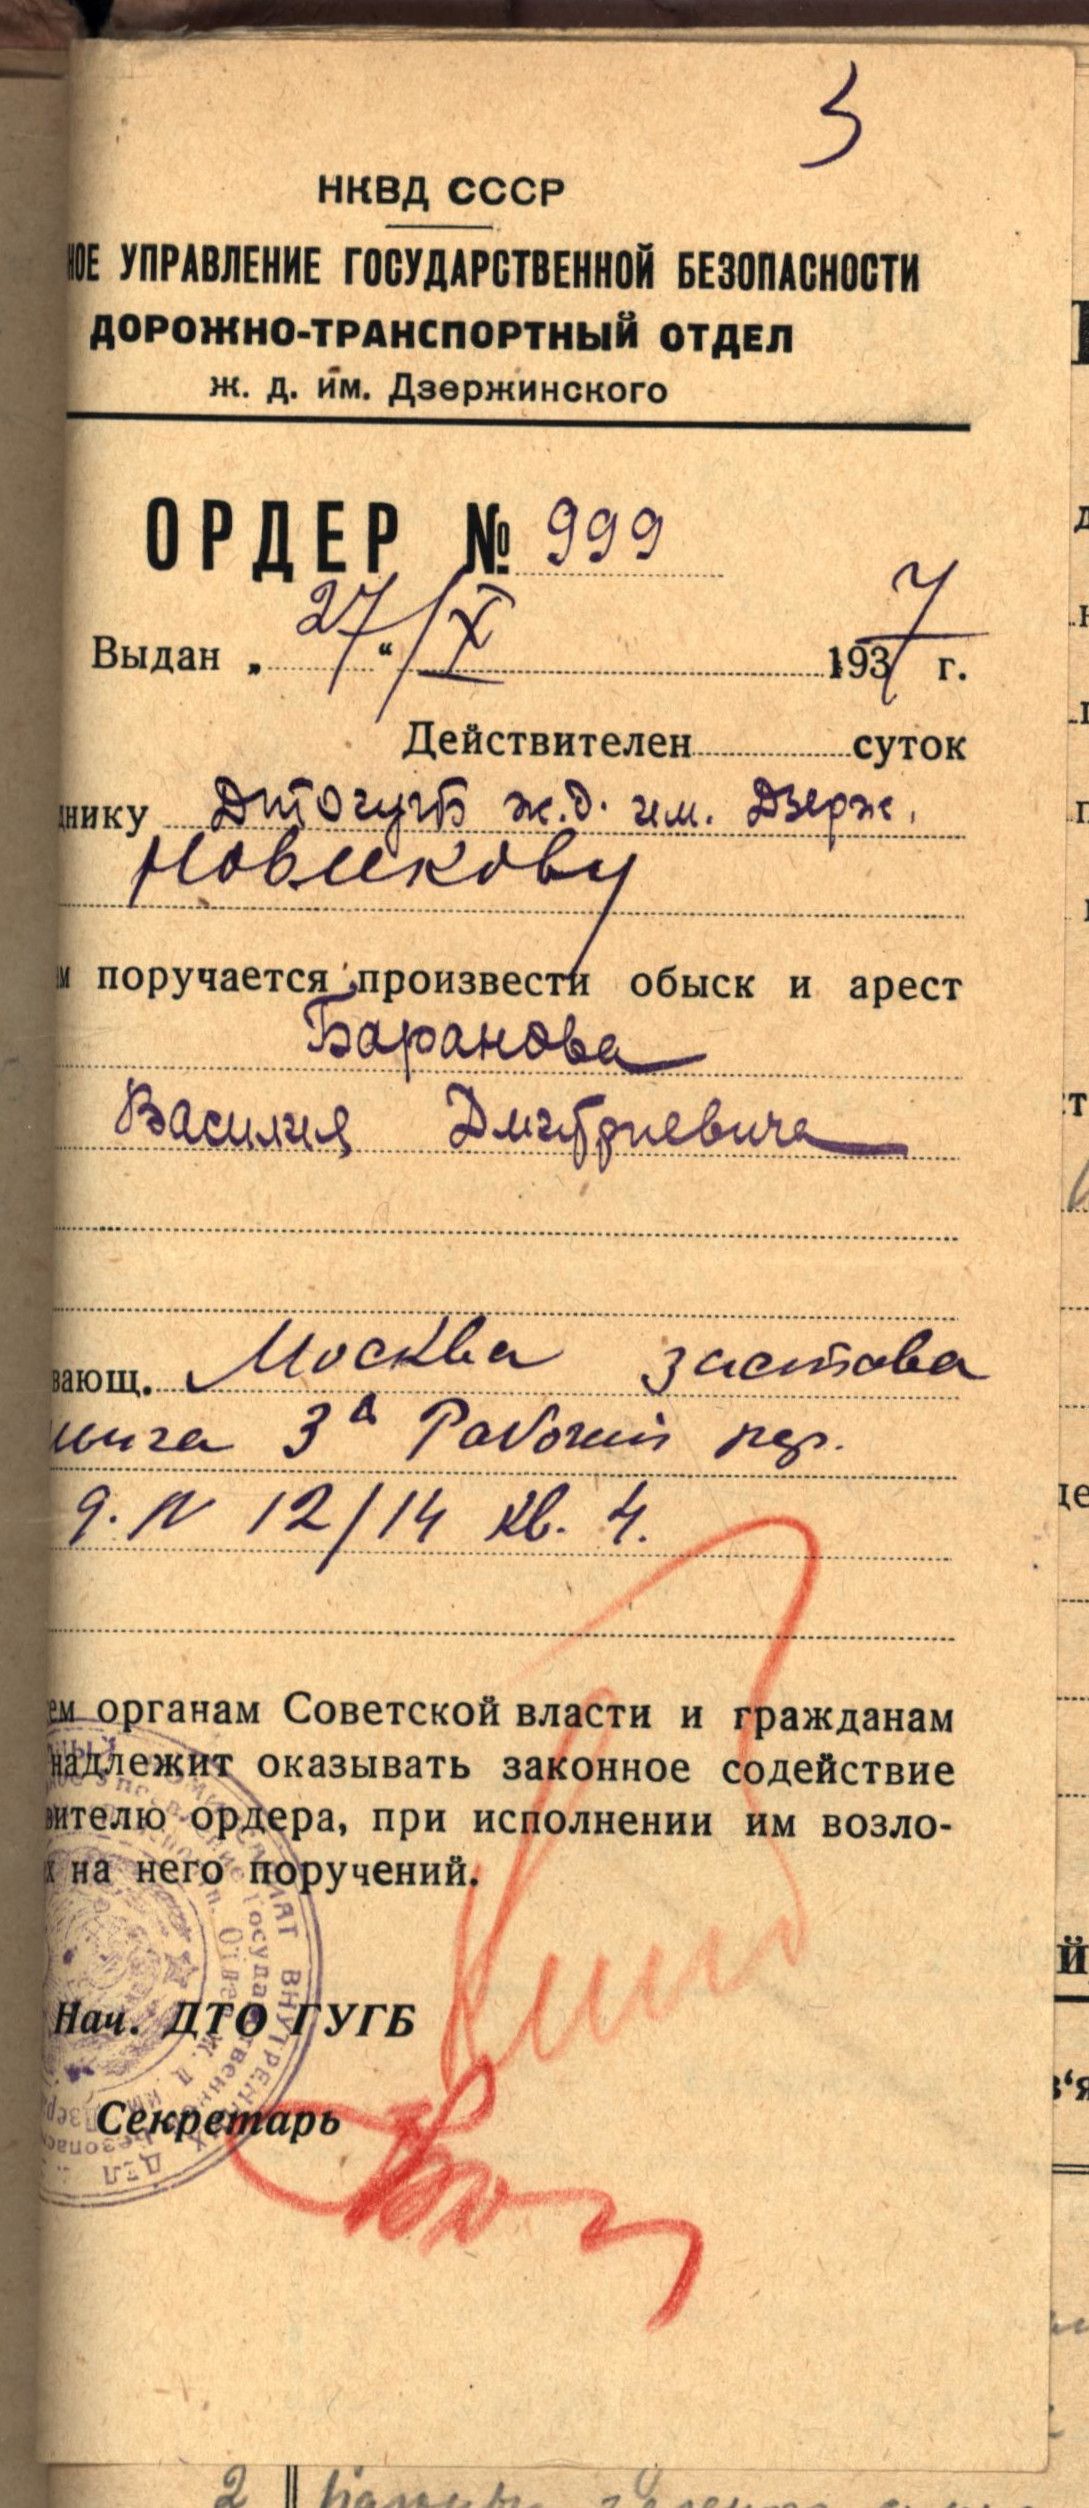 3
НКВД СССР
НОЕ УПРАВЛЕНИЕ ГОСУДАРСТВЕННОЙ БЕЗОПАСНОСТИ
ДОРОЖНО-ТРАНСПОРТНЫЙ ОТДЕЛ
ж. д. им. Дзержинского
ОРДЕР № 999
Выдан „27“/X 1937 г.
Действителен суток
днику ДТОГУГБ ж.д. им. Дзерж.
Новикову
м поручается произвести обыск и арест
Баранова
Василия Дмитриевича
вающ. Москва застава
ильича 3й Рабочий пер.
д. N 12/14 кв. 4.
ем органам Советской власти и гражданам
надлежит оказывать законное содействие
вителю ордера, при исполнении им возло-
х на него поручений.
Нач. ДТО ГУГБ
Секретарь